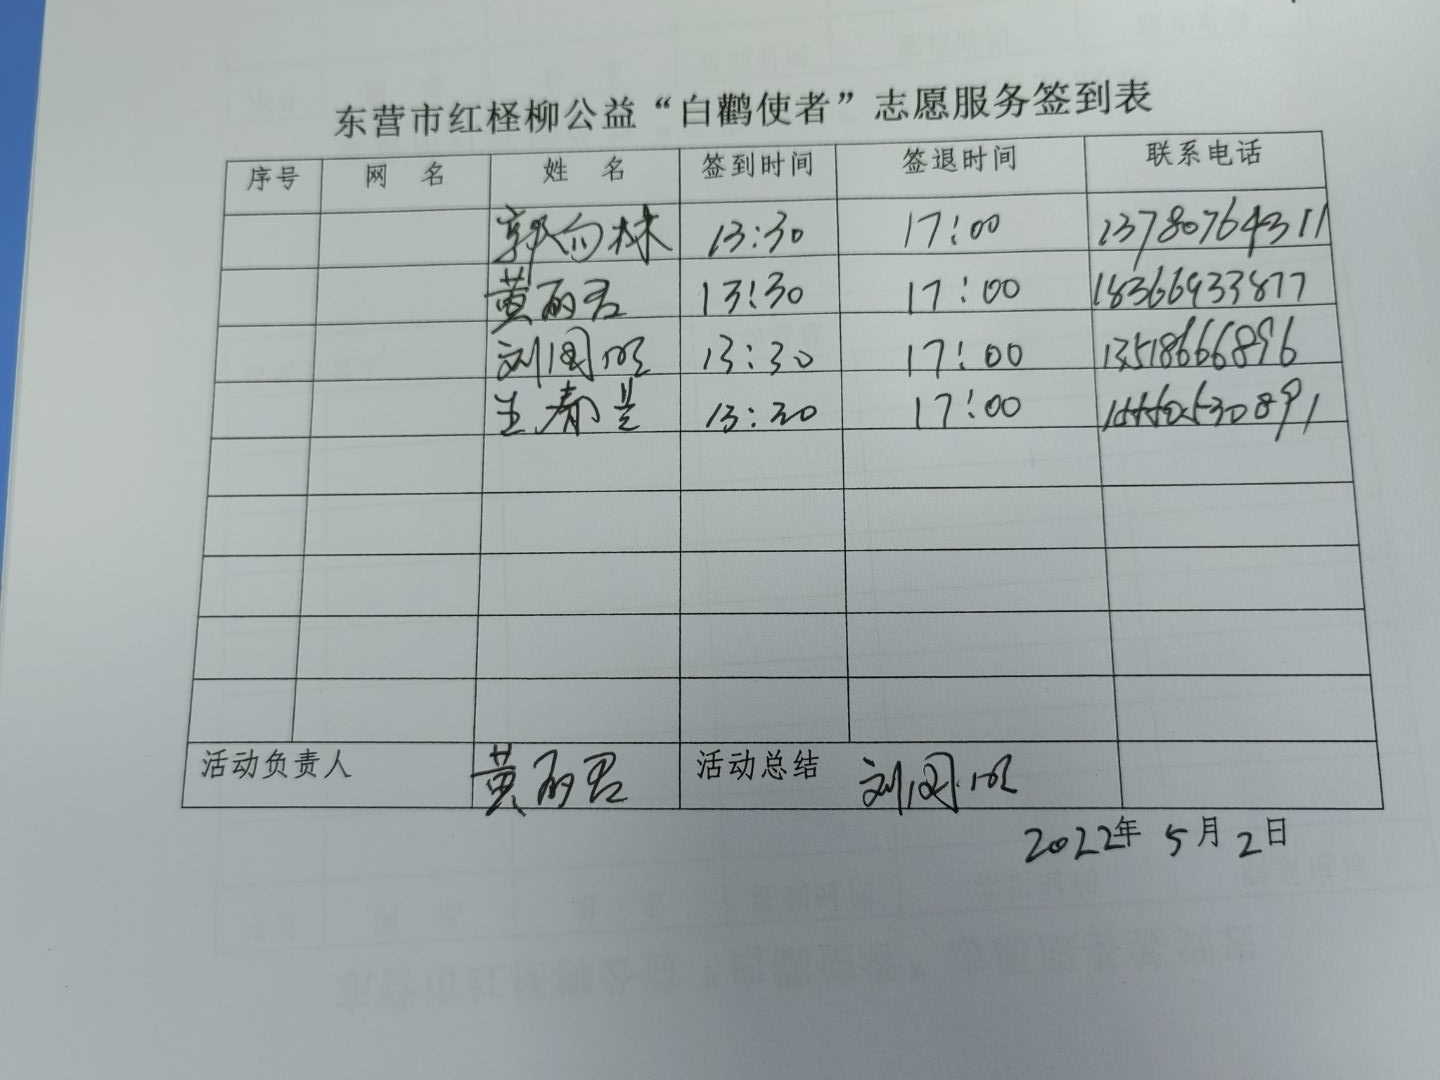 东营市红柽柳公益“白鹳使者”志愿服务签到表
序号 网 名 姓 名 签到时间 签退时间 联系电话
郭向林 13:30 17:00 13780764311
黄丽君 13:30 17:00 18366933877
刘国明 13:30 17:00 13518666896
王春兰 13:30 17:00
活动负责人 黄丽君 活动总结 刘国明
2022年 5月2日